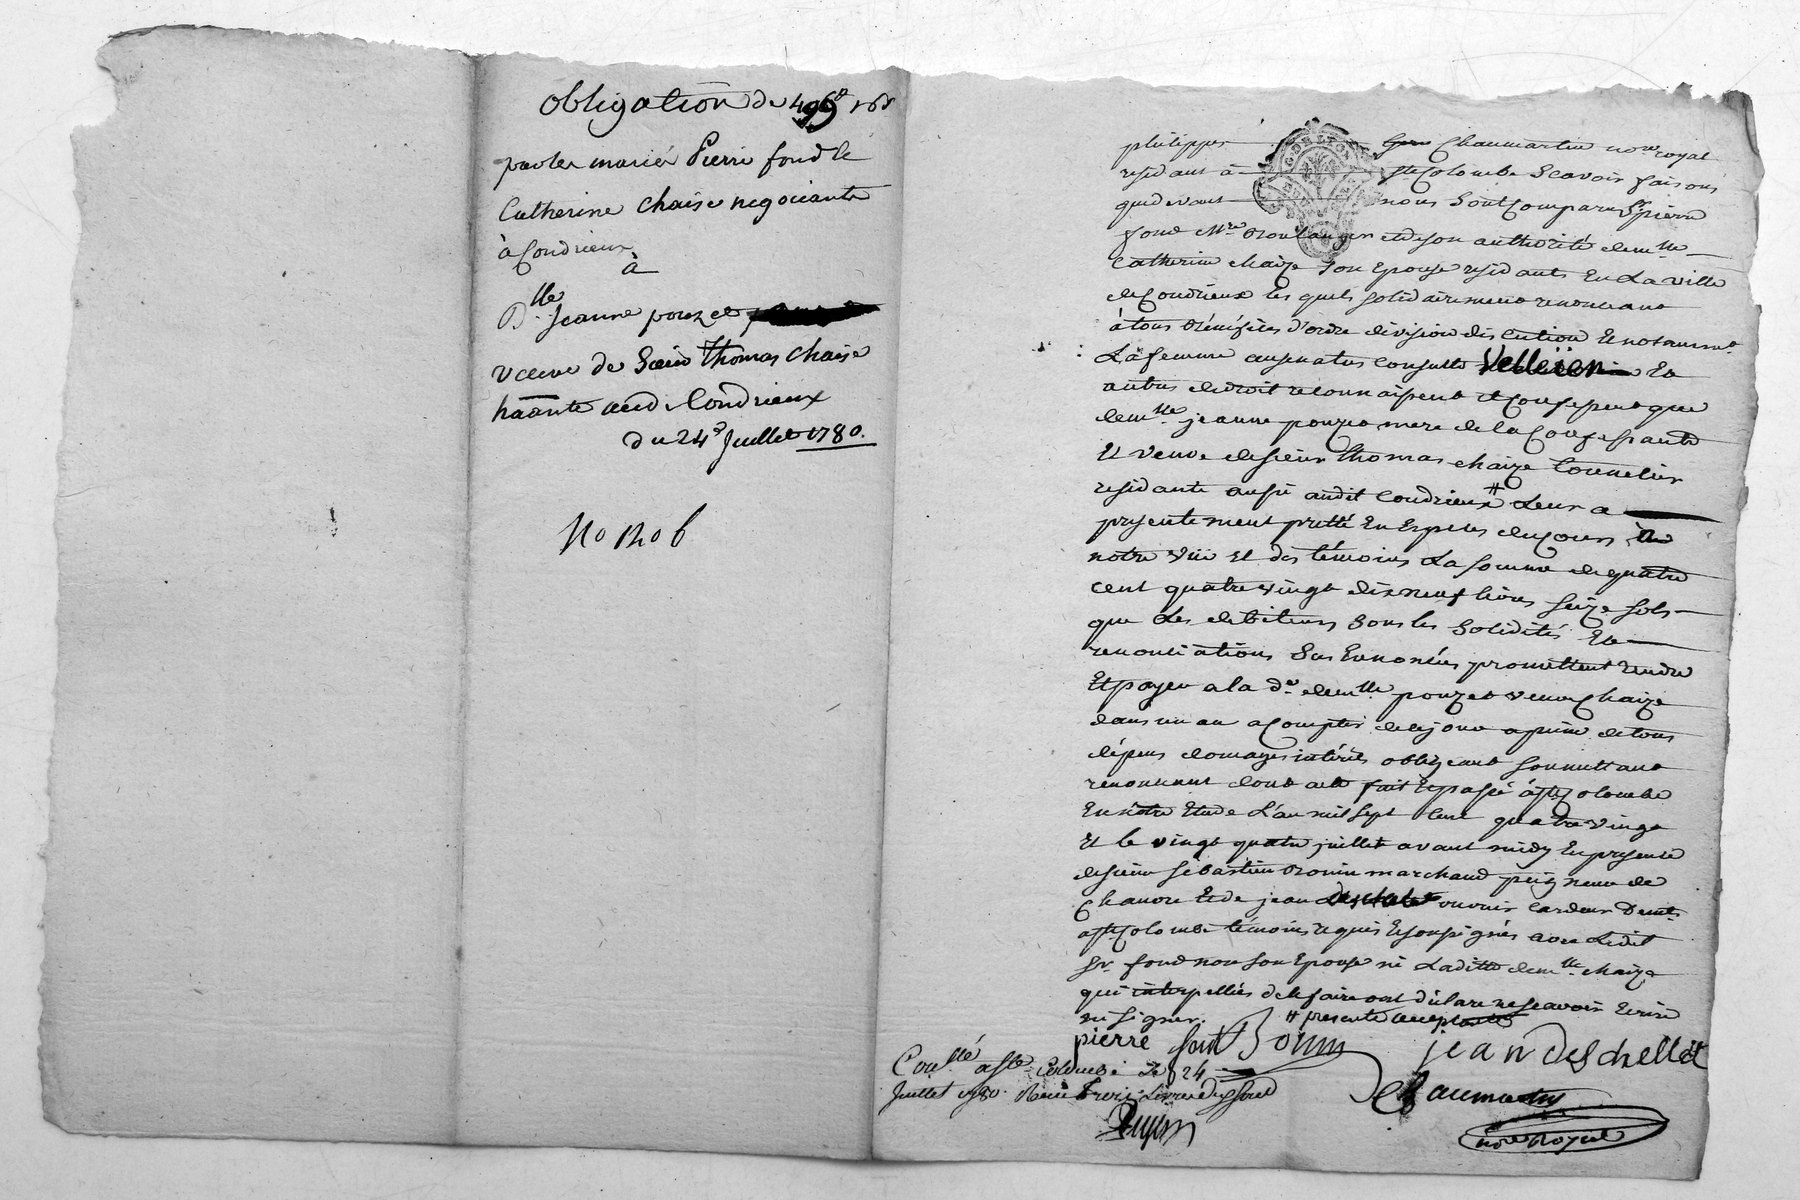 obligation de 499# 16s
par les mariés Pierre fond &
Catherine Chaise negociante
à Condrieux
à
Dlle Jeanne pouzet
veuve de Sieur Thomas Chaise
habitante aud. Condrieux
du 24e Juillet 1780.
No 1206
philippe Chaumartin nore royal
residant à Ste Colombe Scavoir faisons
que devant nous Sont Comparus Sr pierre
fond Mre Boulanger et de son authorité demlle
Catherine chaize Son Epouse residants En La ville
de Condrieux les quels solidairement renonceant
à tous bénéfices d'ordre division discution Et notamment
La femme au senatus consulte Velleien Et
autres de droit reconnaissent et Confessent que
demlle jeanne pouzet mere de la Confessante
Et veuve de sieur thomas chaize tonnelier
residante aussi audit Condrieux # Leur a
presentement pretté En Especes de Cours à
notre vüe et des témoins La somme de quatre
cent quatre vingt dix neuf livres seize sols
que Les debiteurs sous les solidités Et
renontiations Sus Enoncées promettent rendre
Et payer a la de demlle pouzet veuve Chaize
dans un an a Compter de ce jour a peine de tous
dépens domages intérêts obligeant soumettant
renonceant dont acte fait Et passé à Ste Colombe
En nôtre Etude L'an mil sept Cent quatre vingt
Et le vingt quatre juillet avant midy En presence
de sieur sébastien Bonin marchand peigneur de
Chanvre Et de jean Deschelet ouvrier cardeur Demts
a Ste Colombe témoins requis Et soussignés avec Ledit
Sr. fond non son Epouse ni Laditte demlle chaize
qui interpellées de le faire ont déclaré ne scavoir Ecrire
ni signer. # presente acceptante
pierre font Bonin jean deschellet
Conllé a Ste Colombe Le 24
Juillet 1780. Reçu trois Livres dix sols
Chaumartin
nore Royal